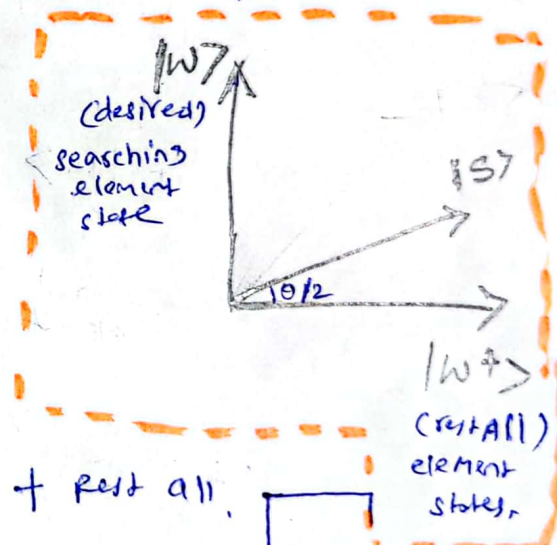 |W>
(desired)
searching
element
state
|S>
θ/2
|W⊥>
(rest All)
element
states,
+ Rest all.